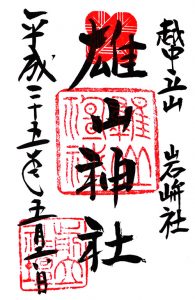 越中立山 岩峅社
雄山神社
平成二十五年五月六日